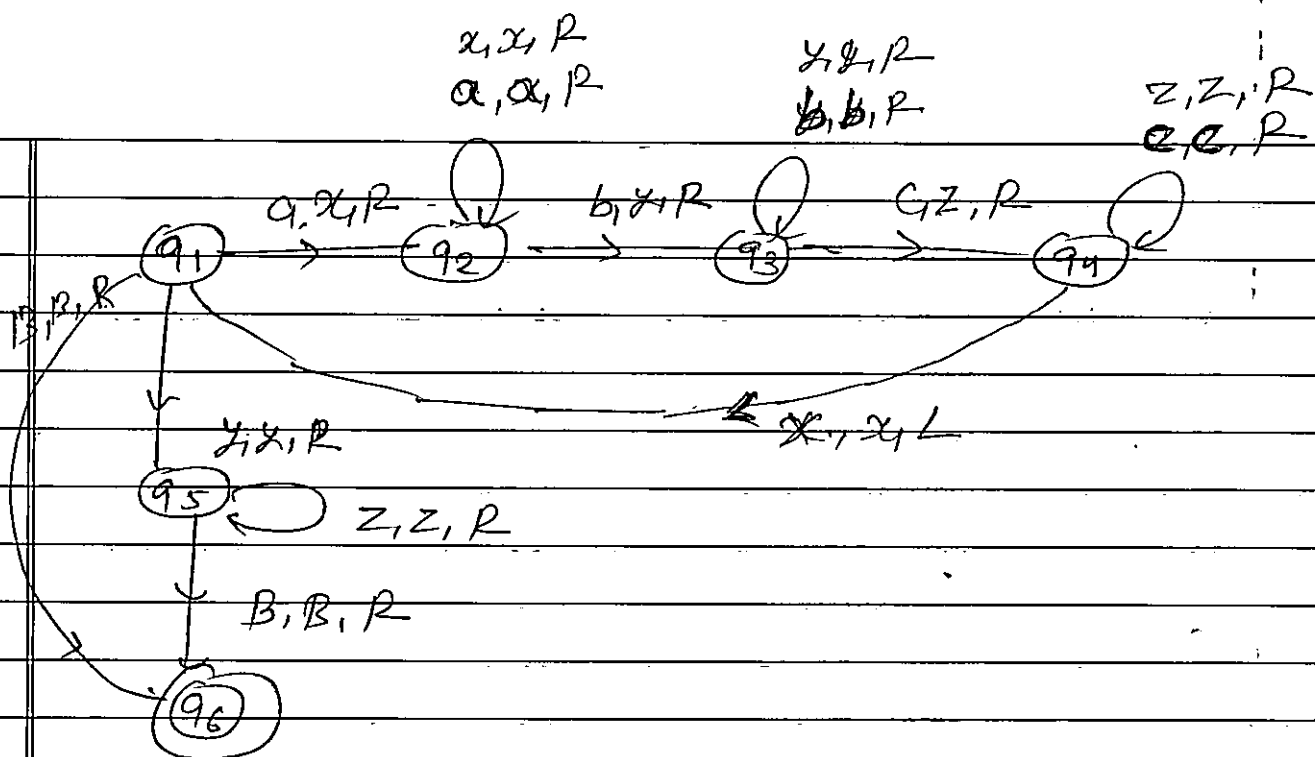 x, x, R
a, a, R
y, y, R
b, b, R
z, z, R
c, c, R
q1
a, x, R
q2
b, y, R
q3
c, z, R
q4
B, B, R
x, x, L
y, y, R
q5
z, z, R
B, B, R
q6